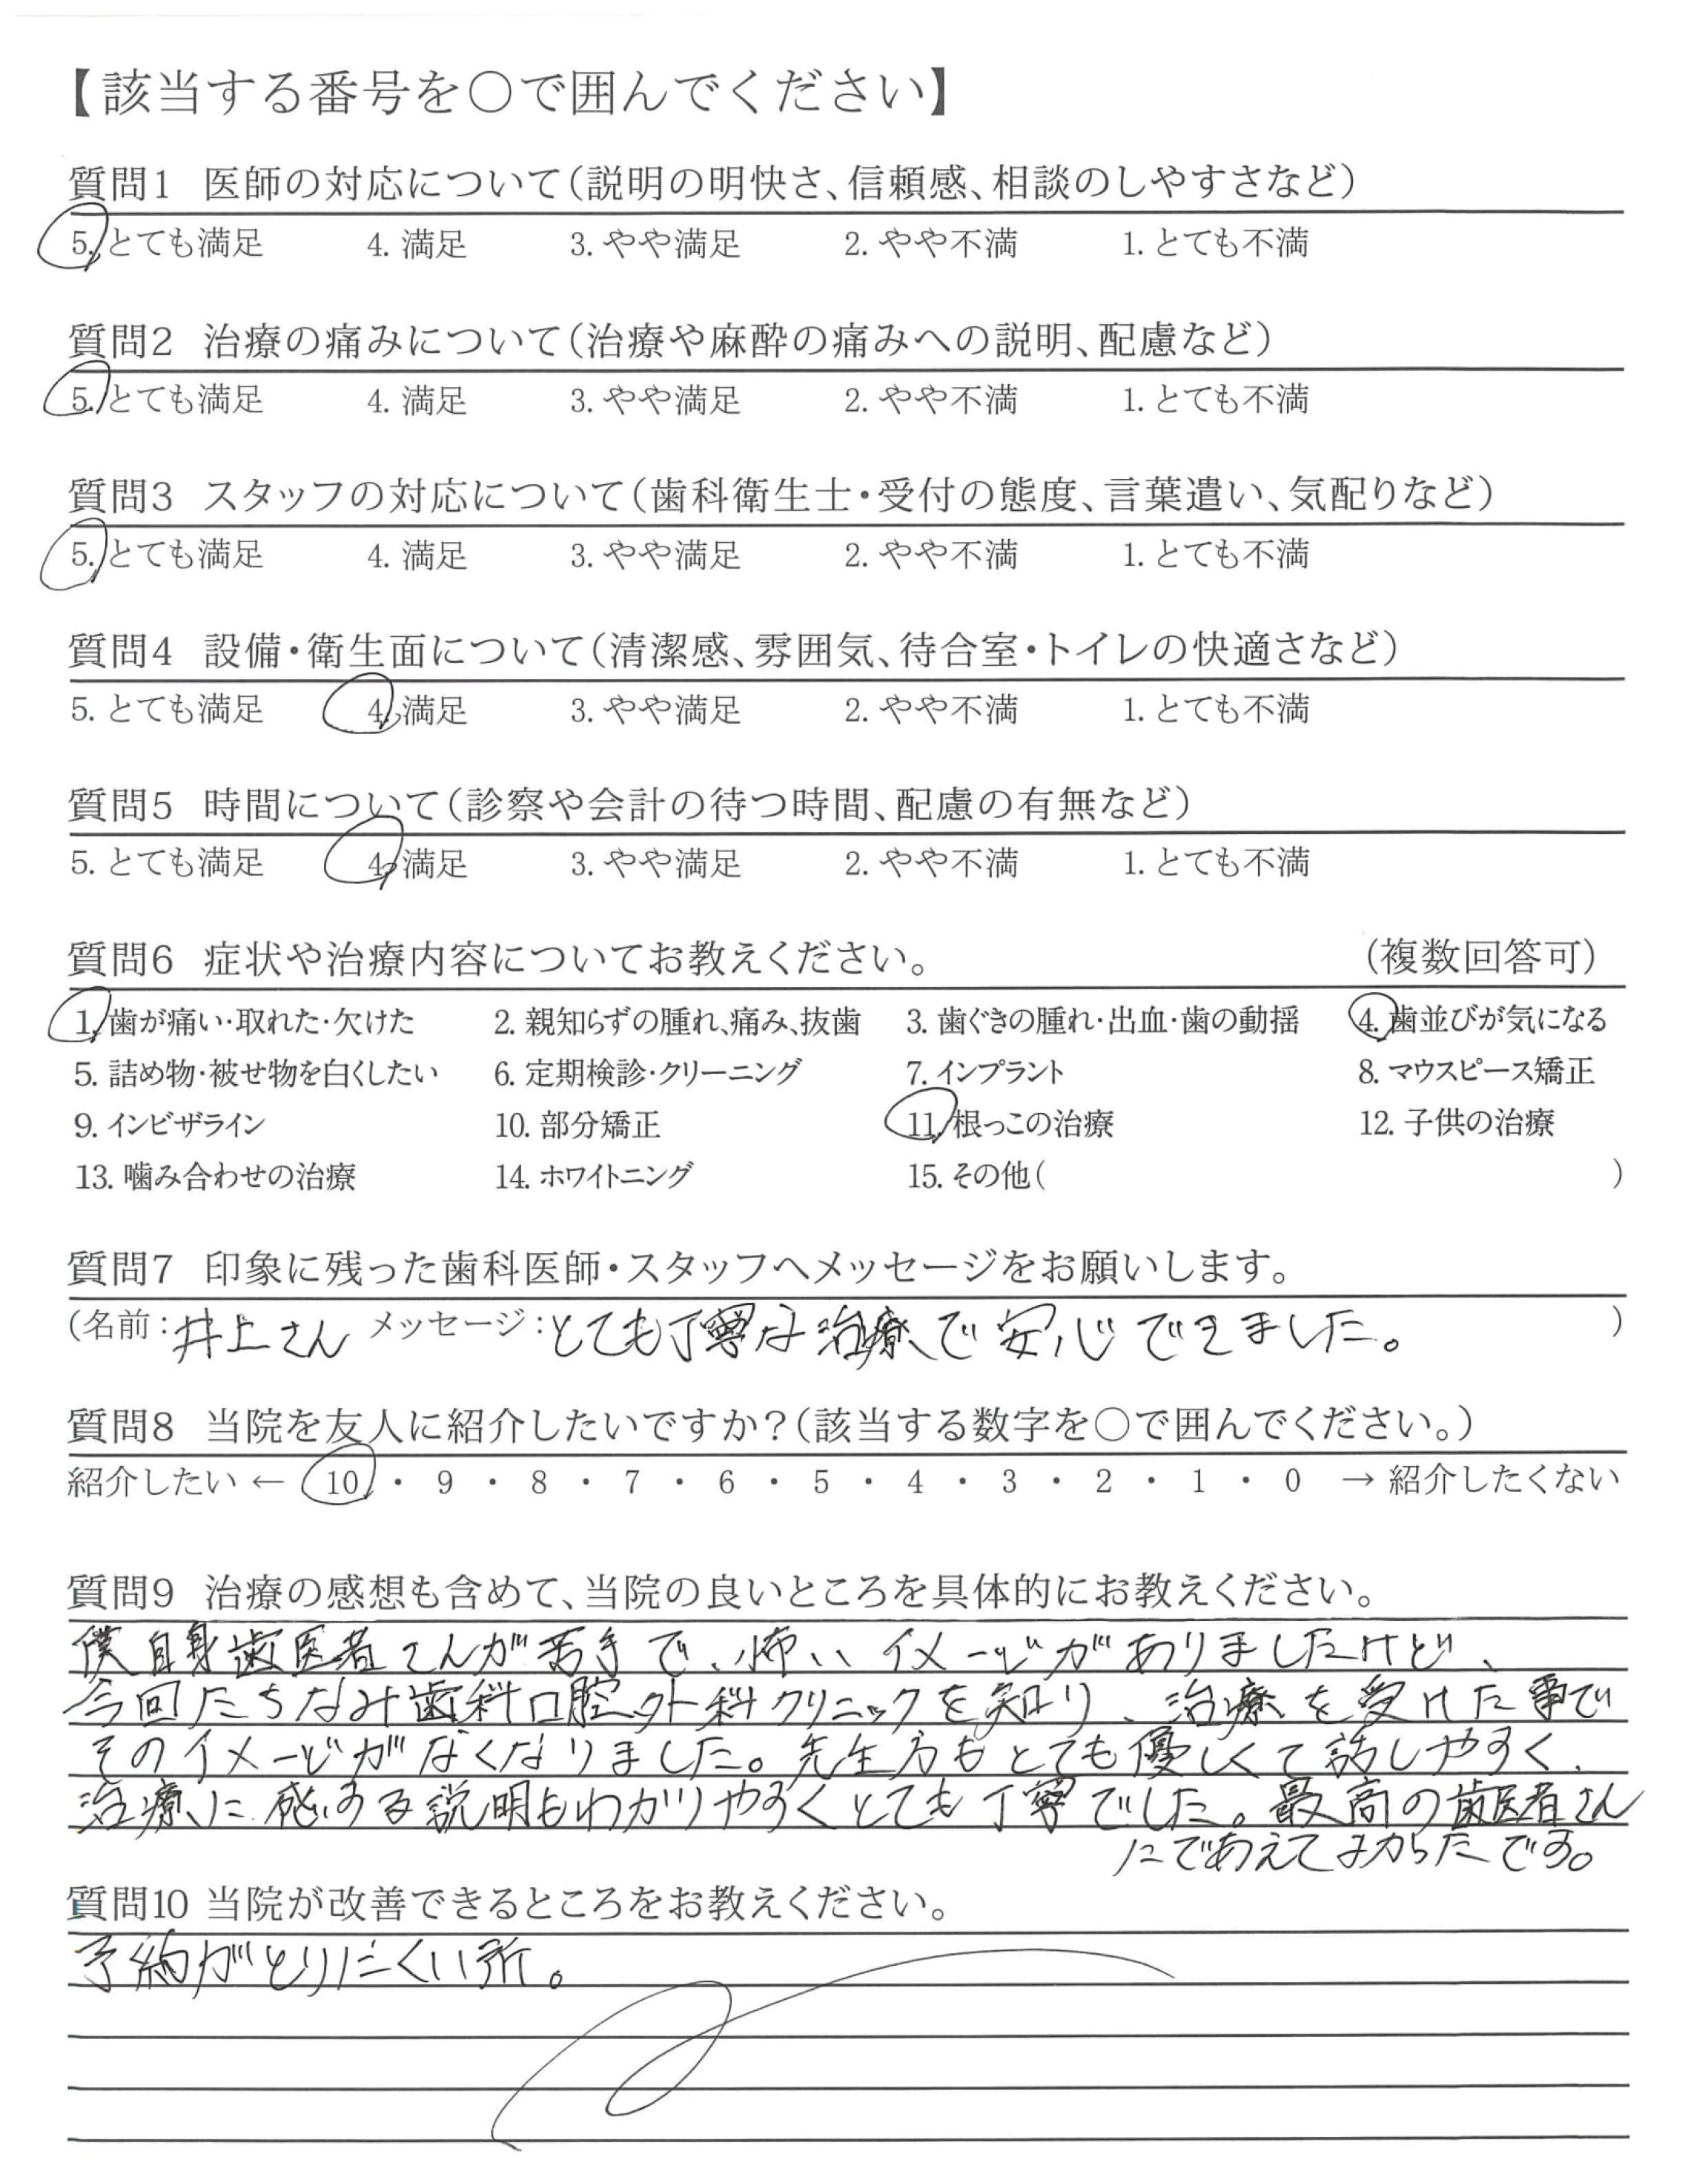 【該当する番号を○で囲んでください】
質問1 医師の対応について(説明の明快さ、信頼感、相談のしやすさなど)
5. とても満足 4. 満足 3. やや満足 2. やや不満 1. とても不満
質問2 治療の痛みについて(治療や麻酔の痛みへの説明、配慮など)
5. とても満足 4. 満足 3. やや満足 2. やや不満 1. とても不満
質問3 スタッフの対応について(歯科衛生士・受付の態度、言葉遣い、気配りなど)
5. とても満足 4. 満足 3. やや満足 2. やや不満 1. とても不満
質問4 設備・衛生面について(清潔感、雰囲気、待合室・トイレの快適さなど)
5. とても満足 4. 満足 3. やや満足 2. やや不満 1. とても不満
質問5 時間について(診察や会計の待つ時間、配慮の有無など)
5. とても満足 4. 満足 3. やや満足 2. やや不満 1. とても不満
質問6 症状や治療内容についてお教えください。 (複数回答可)
1. 歯が痛い・取れた・欠けた 2. 親知らずの腫れ、痛み、抜歯 3. 歯ぐきの腫れ・出血・歯の動揺 4. 歯並びが気になる
5. 詰め物・被せ物を白くしたい 6. 定期検診・クリーニング 7. インプラント 8. マウスピース矯正
9. インビザライン 10. 部分矯正 11. 根っこの治療 12. 子供の治療
13. 噛み合わせの治療 14. ホワイトニング 15. その他( )
質問7 印象に残った歯科医師・スタッフへメッセージをお願いします。
(名前：井上さん メッセージ：とても丁寧な治療で安心できました。 )
質問8 当院を友人に紹介したいですか？(該当する数字を○で囲んでください。)
紹介したい ← 10 ・ 9 ・ 8 ・ 7 ・ 6 ・ 5 ・ 4 ・ 3 ・ 2 ・ 1 ・ 0 → 紹介したくない
質問9 治療の感想も含めて、当院の良いところを具体的にお教えください。
僕自身歯医者さんが苦手で、怖いイメージがありましたけど、
今回たちなみ歯科口腔外科クリニックを知り、治療を受けた事で
そのイメージがなくなりました。先生方もとても優しくて話しやすく、
治療に感する説明もわかりやすくとても丁寧でした。最高の歯医者さん
にであえてよかったです。
質問10 当院が改善できるところをお教えください。
予約がとりにくい所。